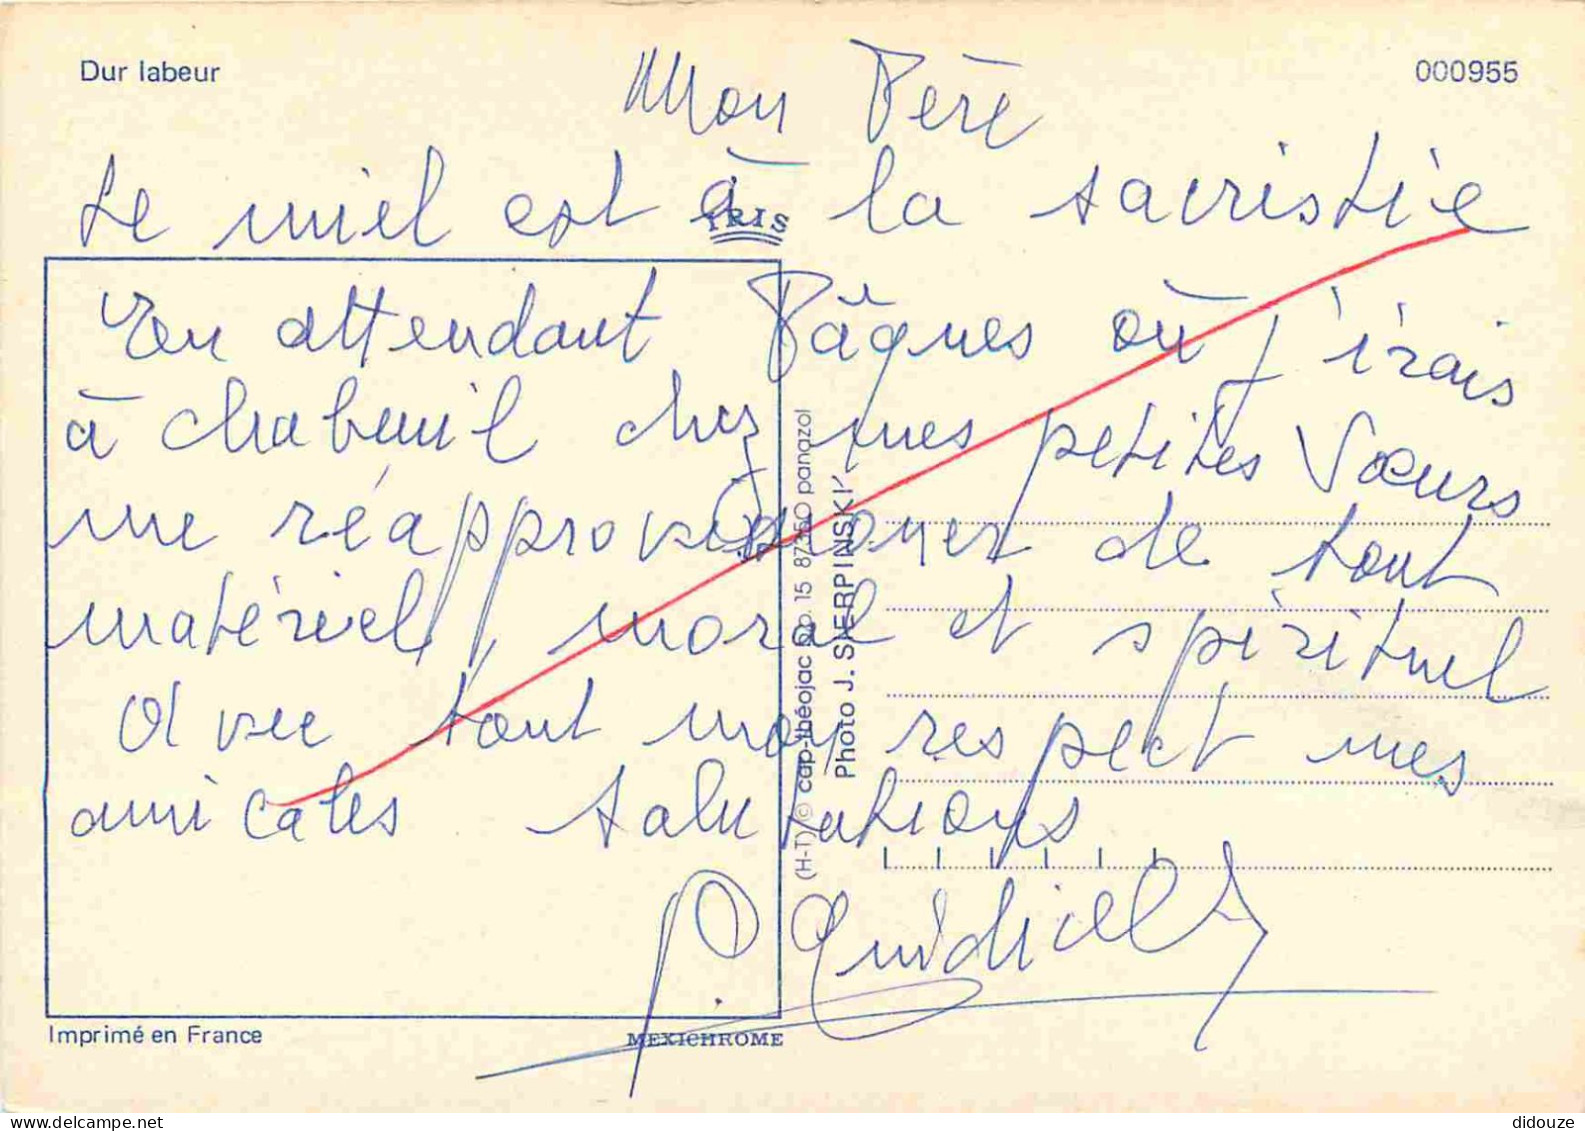 Dur labeur
000955
Mon Père
Le miel est à la sacristie
IRIS
En attendant Pâques où j'irais
à chabeuil chez mes petites Sœurs
me réapprovisionner de tout
matériel, moral et spirituel
Avec tout mon respect mes
amicales salutations
P.
(H-T) © cap-théojac b.p. 15 87350 panazol
Photo J. SIERPINSKI
Imprimé en France
MEXICHROME
didouze